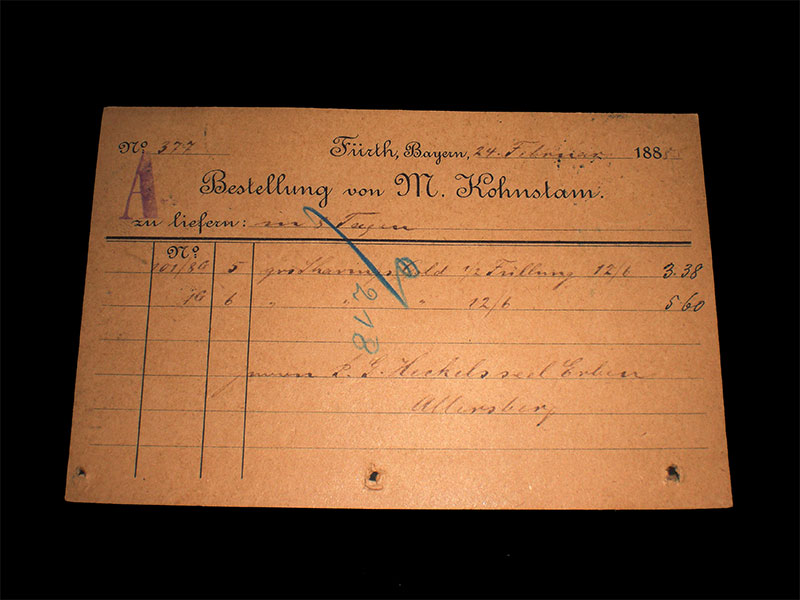 No 577 Fürth, Bayern, 24. Februar 188
A
Bestellung von M. Kohnstam.
zu liefern: in 5 Tagen
No
5 1/2 Füllung 12/6 3.38
16 6 " " " 12/6 5 60
218
Herren L. G. Heckels sel Erben
Allersberg